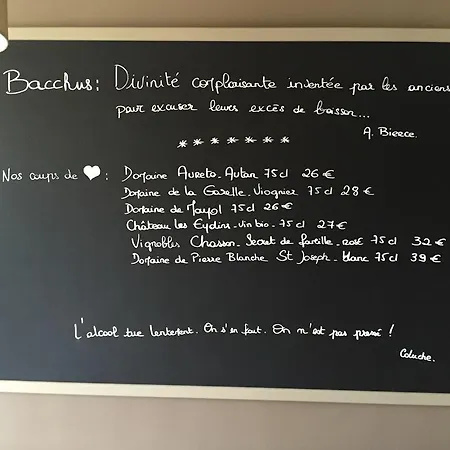 Bacchus: Divinité complaisante inventée par les anciens
pour excuser leurs excès de boisson...
A. Bierce.
*******
Nos coups de ♥ : Domaine Aureto - Autan 75cl 26 €
Domaine de la Gazelle - Viognier 75cl 28 €
Domaine de Mayol 75cl 26 €
Château les Eydins - vin bio - 75cl 27 €
Vignobles Chasson - Secret de famille - rosé 75cl 32 €
Domaine de Pierre Blanche St Joseph - blanc 75cl 39 €
L'alcool tue lentement. On s'en fout. On n'est pas pressé !
Coluche.